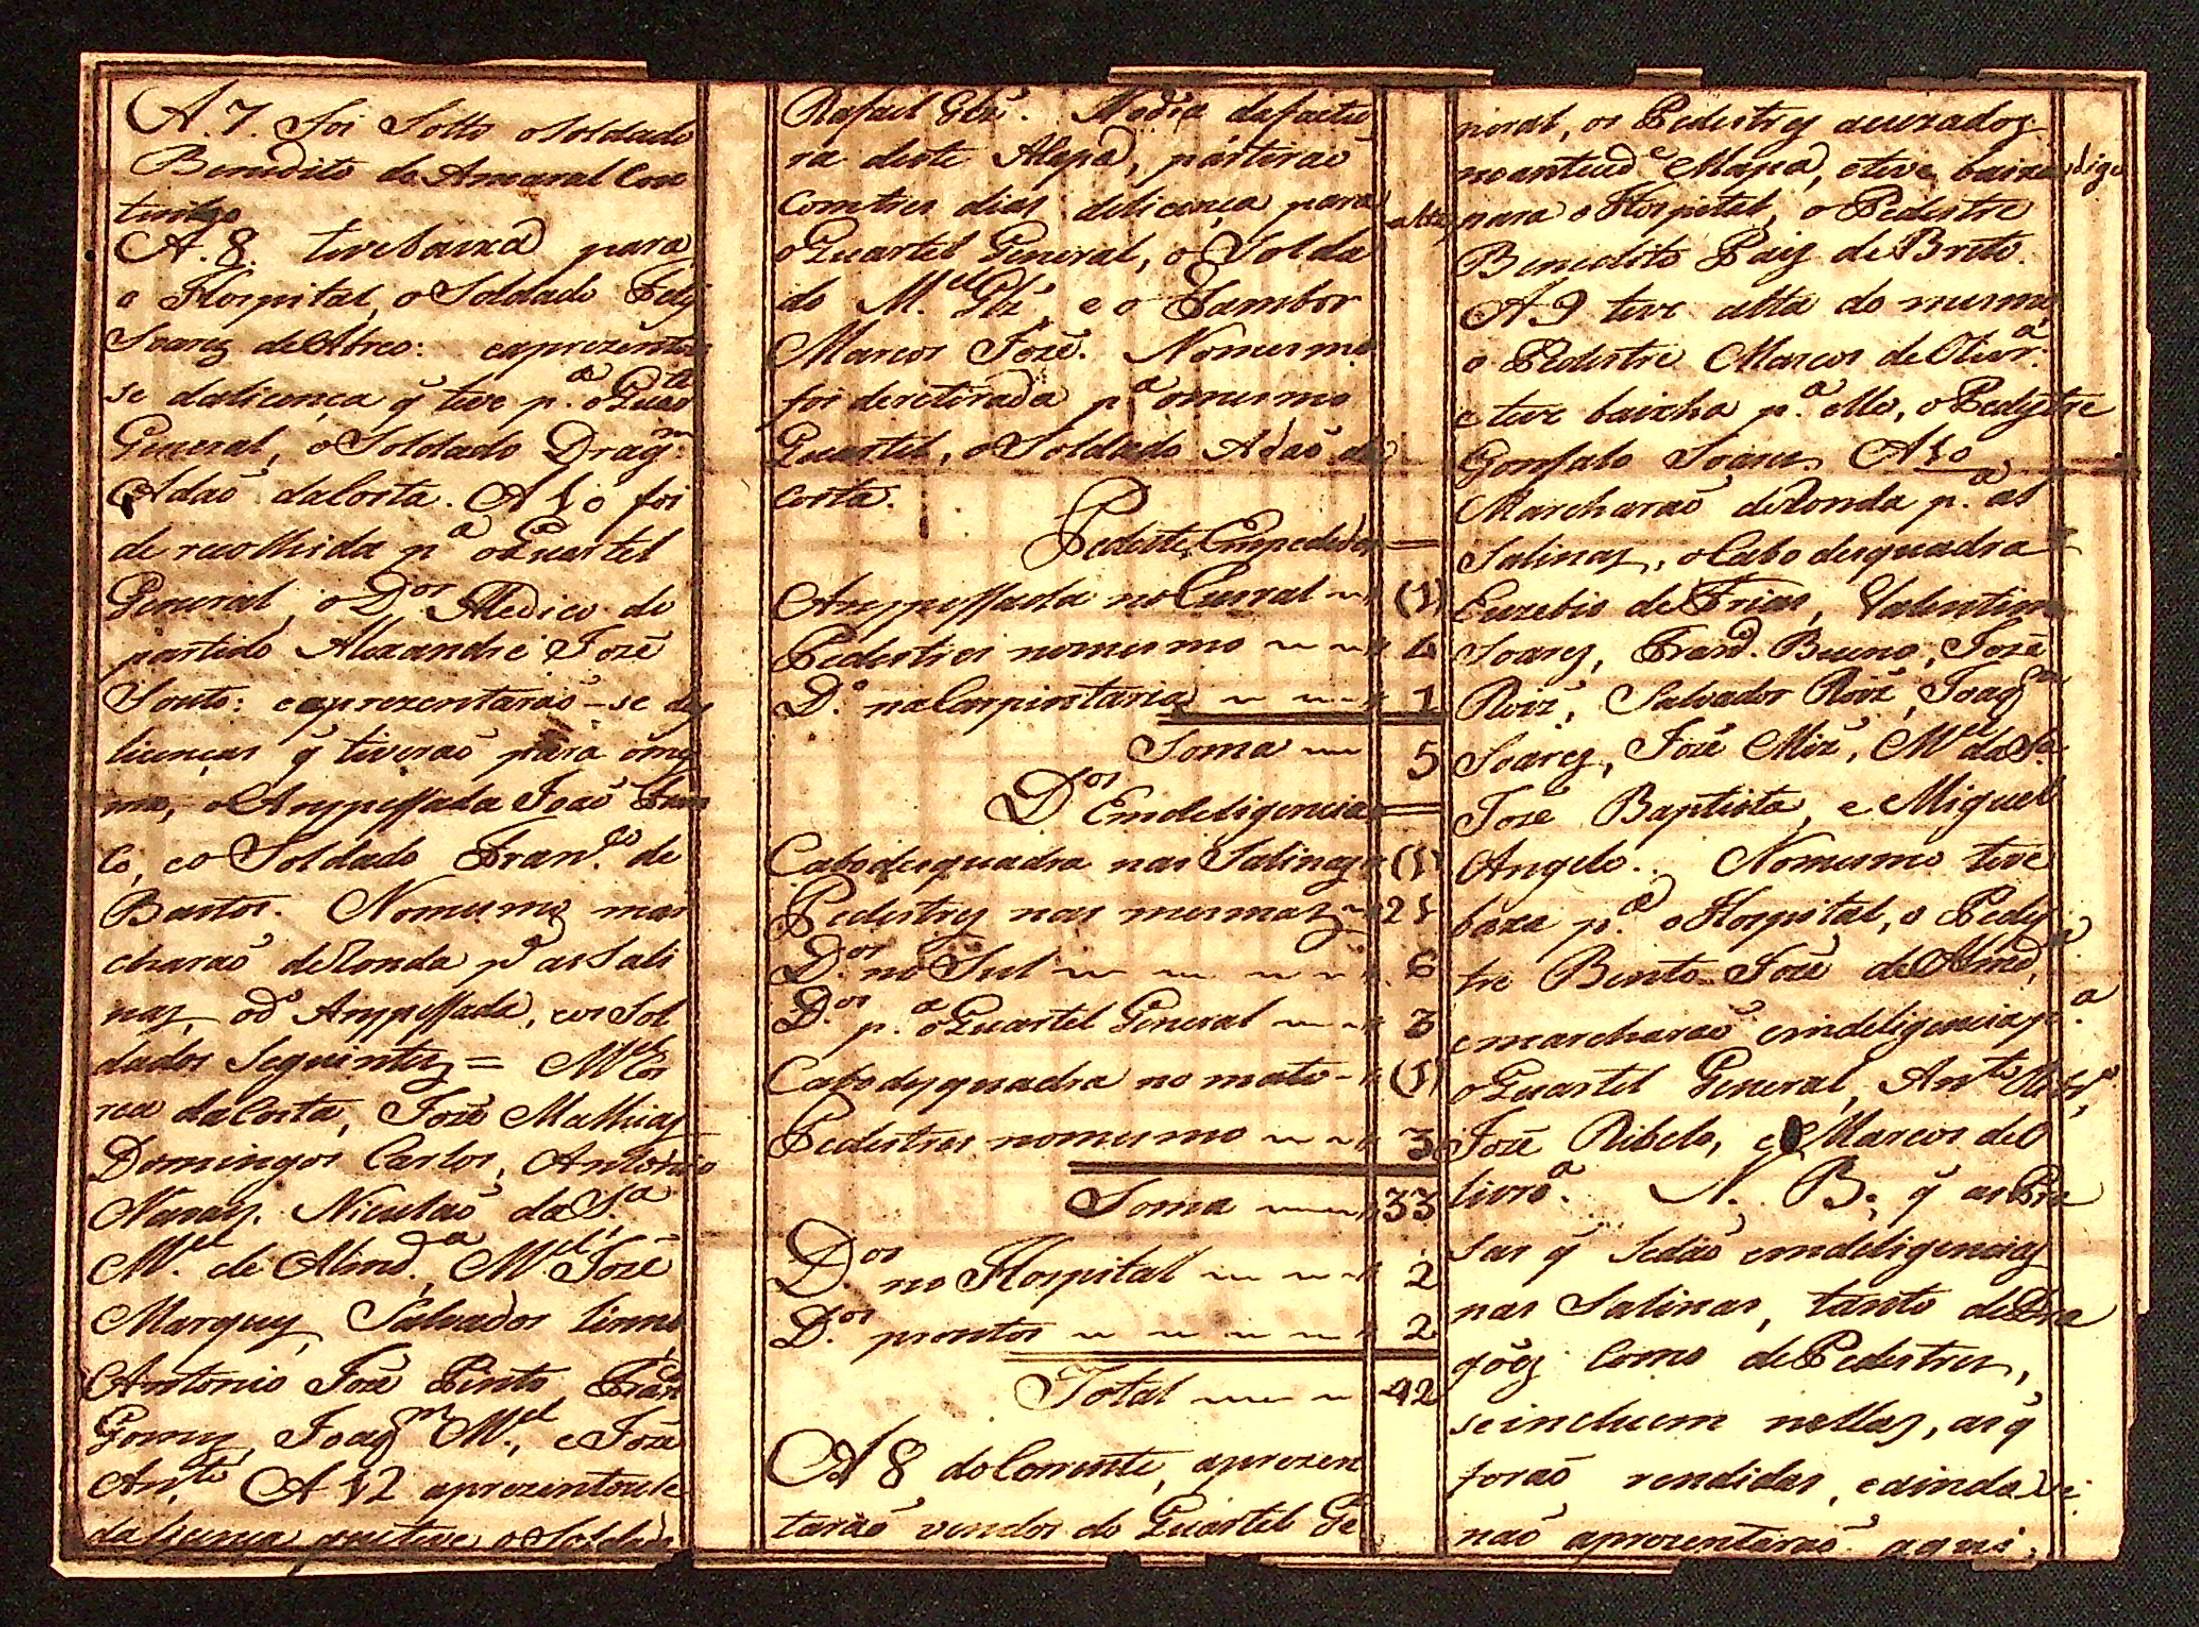 A. 7. foi Solto o Soldado
Benedito do Amaral Cou
tinho
A. 8. teve baixa para
o Hospital, o Soldado Feliz
Soares de Abreo: e aprezentou
se da licença q̃ teve p.ª o Quar.tel
General, o Soldado Drag.m
Adaõ da Costa. A 10 foi
de recolhida p.ª o Quartel
General, o D.or Medico do
partido Alexandre Jozé
Souto: e aprezentaraõ-se das
licenças q̃ tiveraõ para o mes
mo, o Anspessada Joaõ Fran
co, e o Soldado Fran.co de
Bastos. No mesmo mar
charaõ de Ronda p.ª as Sali
nas, o d.o Anspessada, e os Sol
dados Seguintes = M.el Cor
rea da Costa, Jozé Mathias
Domingos Carlos, Antonio
Navaes. Niculaõ da S.ª
M.el de Almd.ª, M.el Jozé
Marques, Salvador
Antonio Jozé Pinto, Fran.co
Gomes, Joaq.m M.el, e Jozé
An.to A 12 aprezentouse
da licença que teve o Soldado
Rafael Glz̃. No dia da factu
ra deste Mapa, partiraõ
com tres dias de licença para
o Quartel General, o Solda
do M.el Glz̃, e o Tambor
Marcos Jozé. No mesmo
foi de retirada p.ª o mesmo
Quartel, o Soldado Adaõ da
Costa.
Pedestes Empedidos =
Anspessada no Curral (1)
Pedestres no mesmo 4
D.o na Carpintaria 1
Soma 5
D.os Em deligencia =
Cabo desquadra nas Salinas (1)
Pedestres nas mesmas 21
D.os no Sul 6
D.os p.ª o Quartel General 3
Cabo desquadra no mato (1)
Pedestres no mesmo 3
Soma 33
D.os no Hospital 2
D.os prontos 2
Total 42
A 8 do Corrente, aprezen
taraõ vindos do Quartel Ge
neral, os Pedestres acuzados
no anteced.e Mapa, e teve baixa digo
alta para o Hospital, o Pedestre
Benedito Paiz de Brito.
A 9 teve alta do mesmo
o Pedestre Marcos de Olivr.ª
e teve baixha p.ª elle, o Pedestre
Gonsalo Soares. A 10
Marcharaõ de Ronda p.ª as
Salinas, o Cabo desquadra
Euzebio de Frias, Valentim
Soares, Fran.co Bueno, Jozé
Roiz̃, Salvador Roiz̃, Joaq.m
Soares, Jozé Miz̃, M.el da S.ª
Jozé Baptista, e Miguel
Angelo. No mesmo teve
baxa p.ª o Hospital, o Pedes
tre Bento Jozé de Almd.ª
e marcharaõ em deligencia p.ª
o Quartel General, An.to
Jozé Ribelo, e Marcos de O
livr.ª. N. B. q̃ as Pra
sas q̃ Sedaõ em deligencias
nas Salinas, tanto de Dra
gões Como de Pedestres,
se incluem nellas, as q̃
foraõ rendidas, e ainda se
naõ aprezentaraõ aqui.